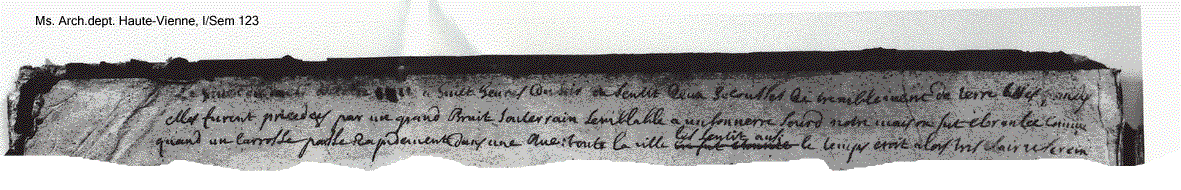 Ms. Arch.dept. Haute-Vienne, I/Sem 123
Le a huit heures du soir on sentit deux secousses de tremblement de terre asses grandes
elles furent précédées par un grand Bruit Souterrain semblable a un tonnerre sourd notre maison fut ebranlée comme
les sentit aussi
quand un carrosse passe rapidement dans une Rue: toute la ville le temps etoit alors tres clair et serein